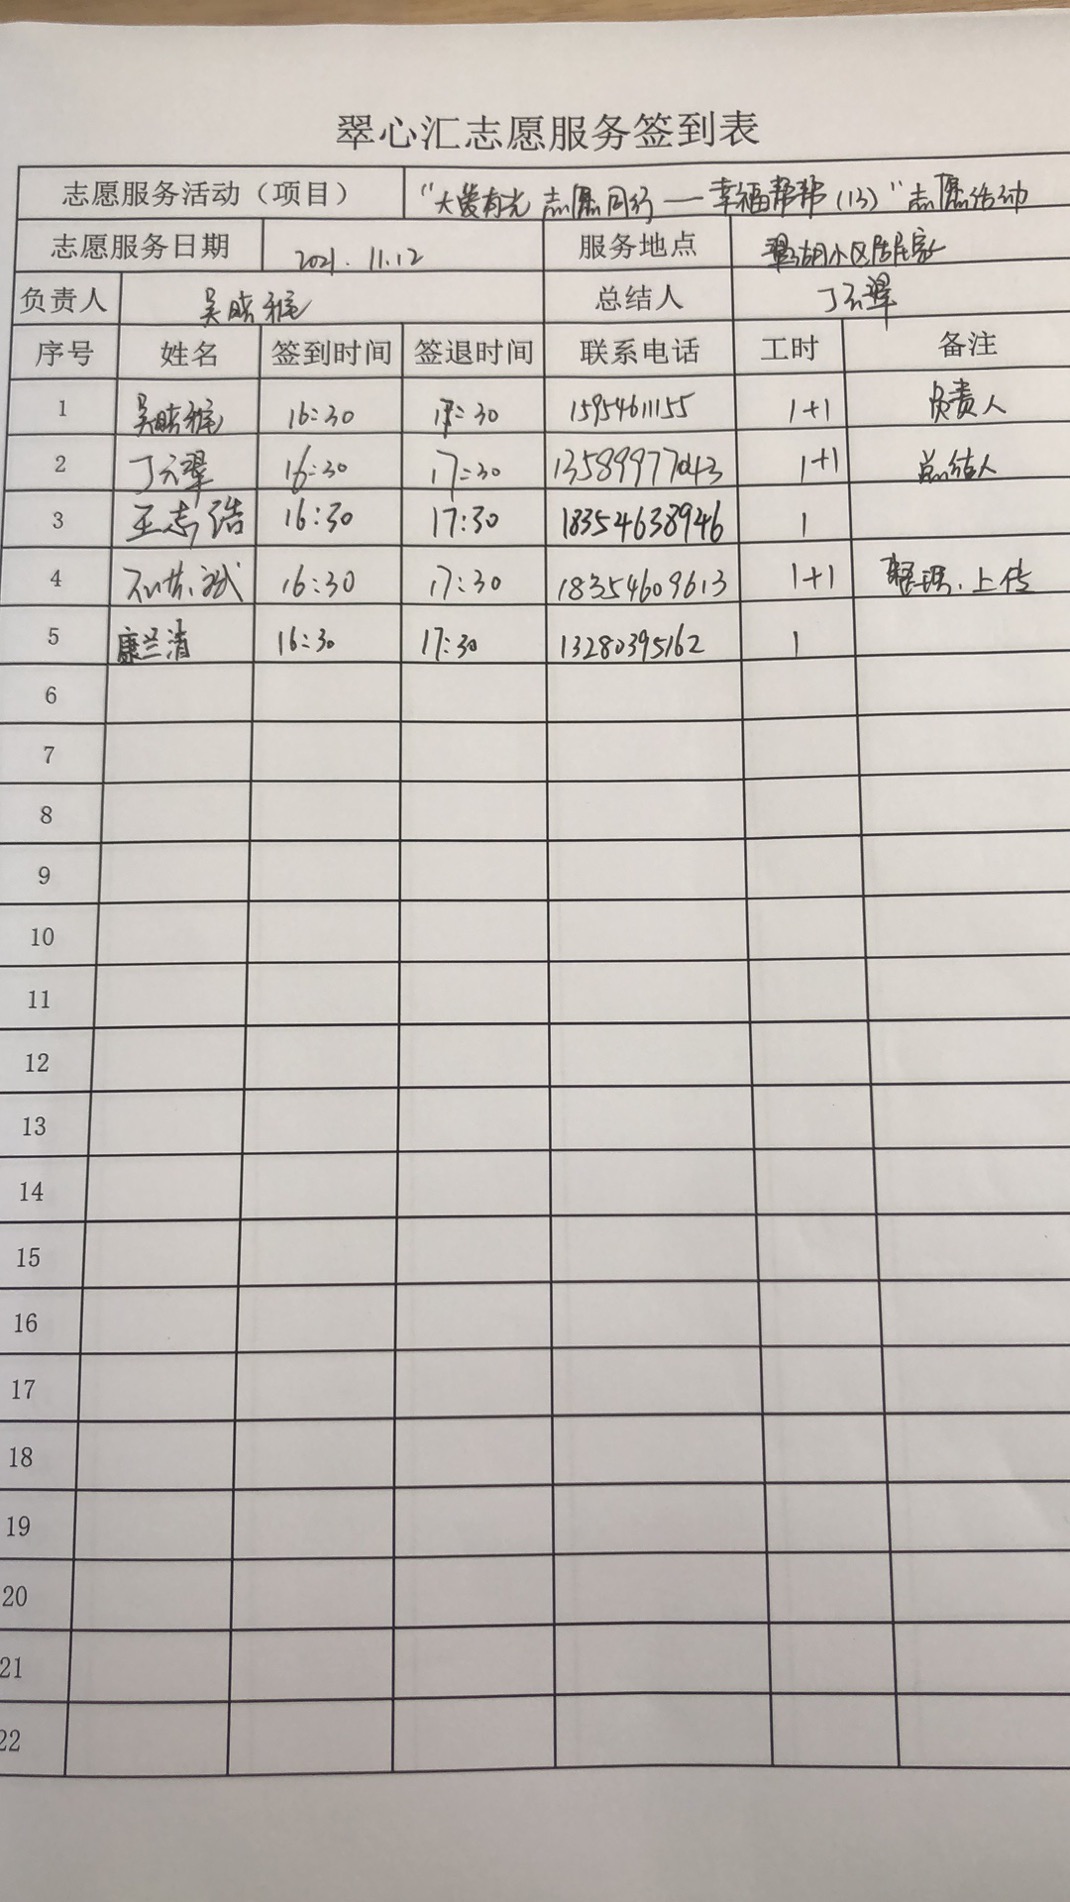 翠心汇志愿服务签到表
志愿服务活动（项目） “大爱有光 志愿同行—幸福帮帮（13）”志愿活动
志愿服务日期 2021.11.12 服务地点 小区居民家
负责人 吴晓雅 总结人 丁云翠
序号 姓名 签到时间 签退时间 联系电话 工时 备注
1 吴晓雅 16:30 17:30 15954611155 1+1 负责人
2 丁云翠 16:30 17:30 13589977043 1+1 总结人
3 王志浩 16:30 17:30 18354638946 1
4 16:30 17:30 18354609613 1+1 整理、上传
5 康兰清 16:30 17:30 13280395162 1
6
7
8
9
10
11
12
13
14
15
16
17
18
19
20
21
22